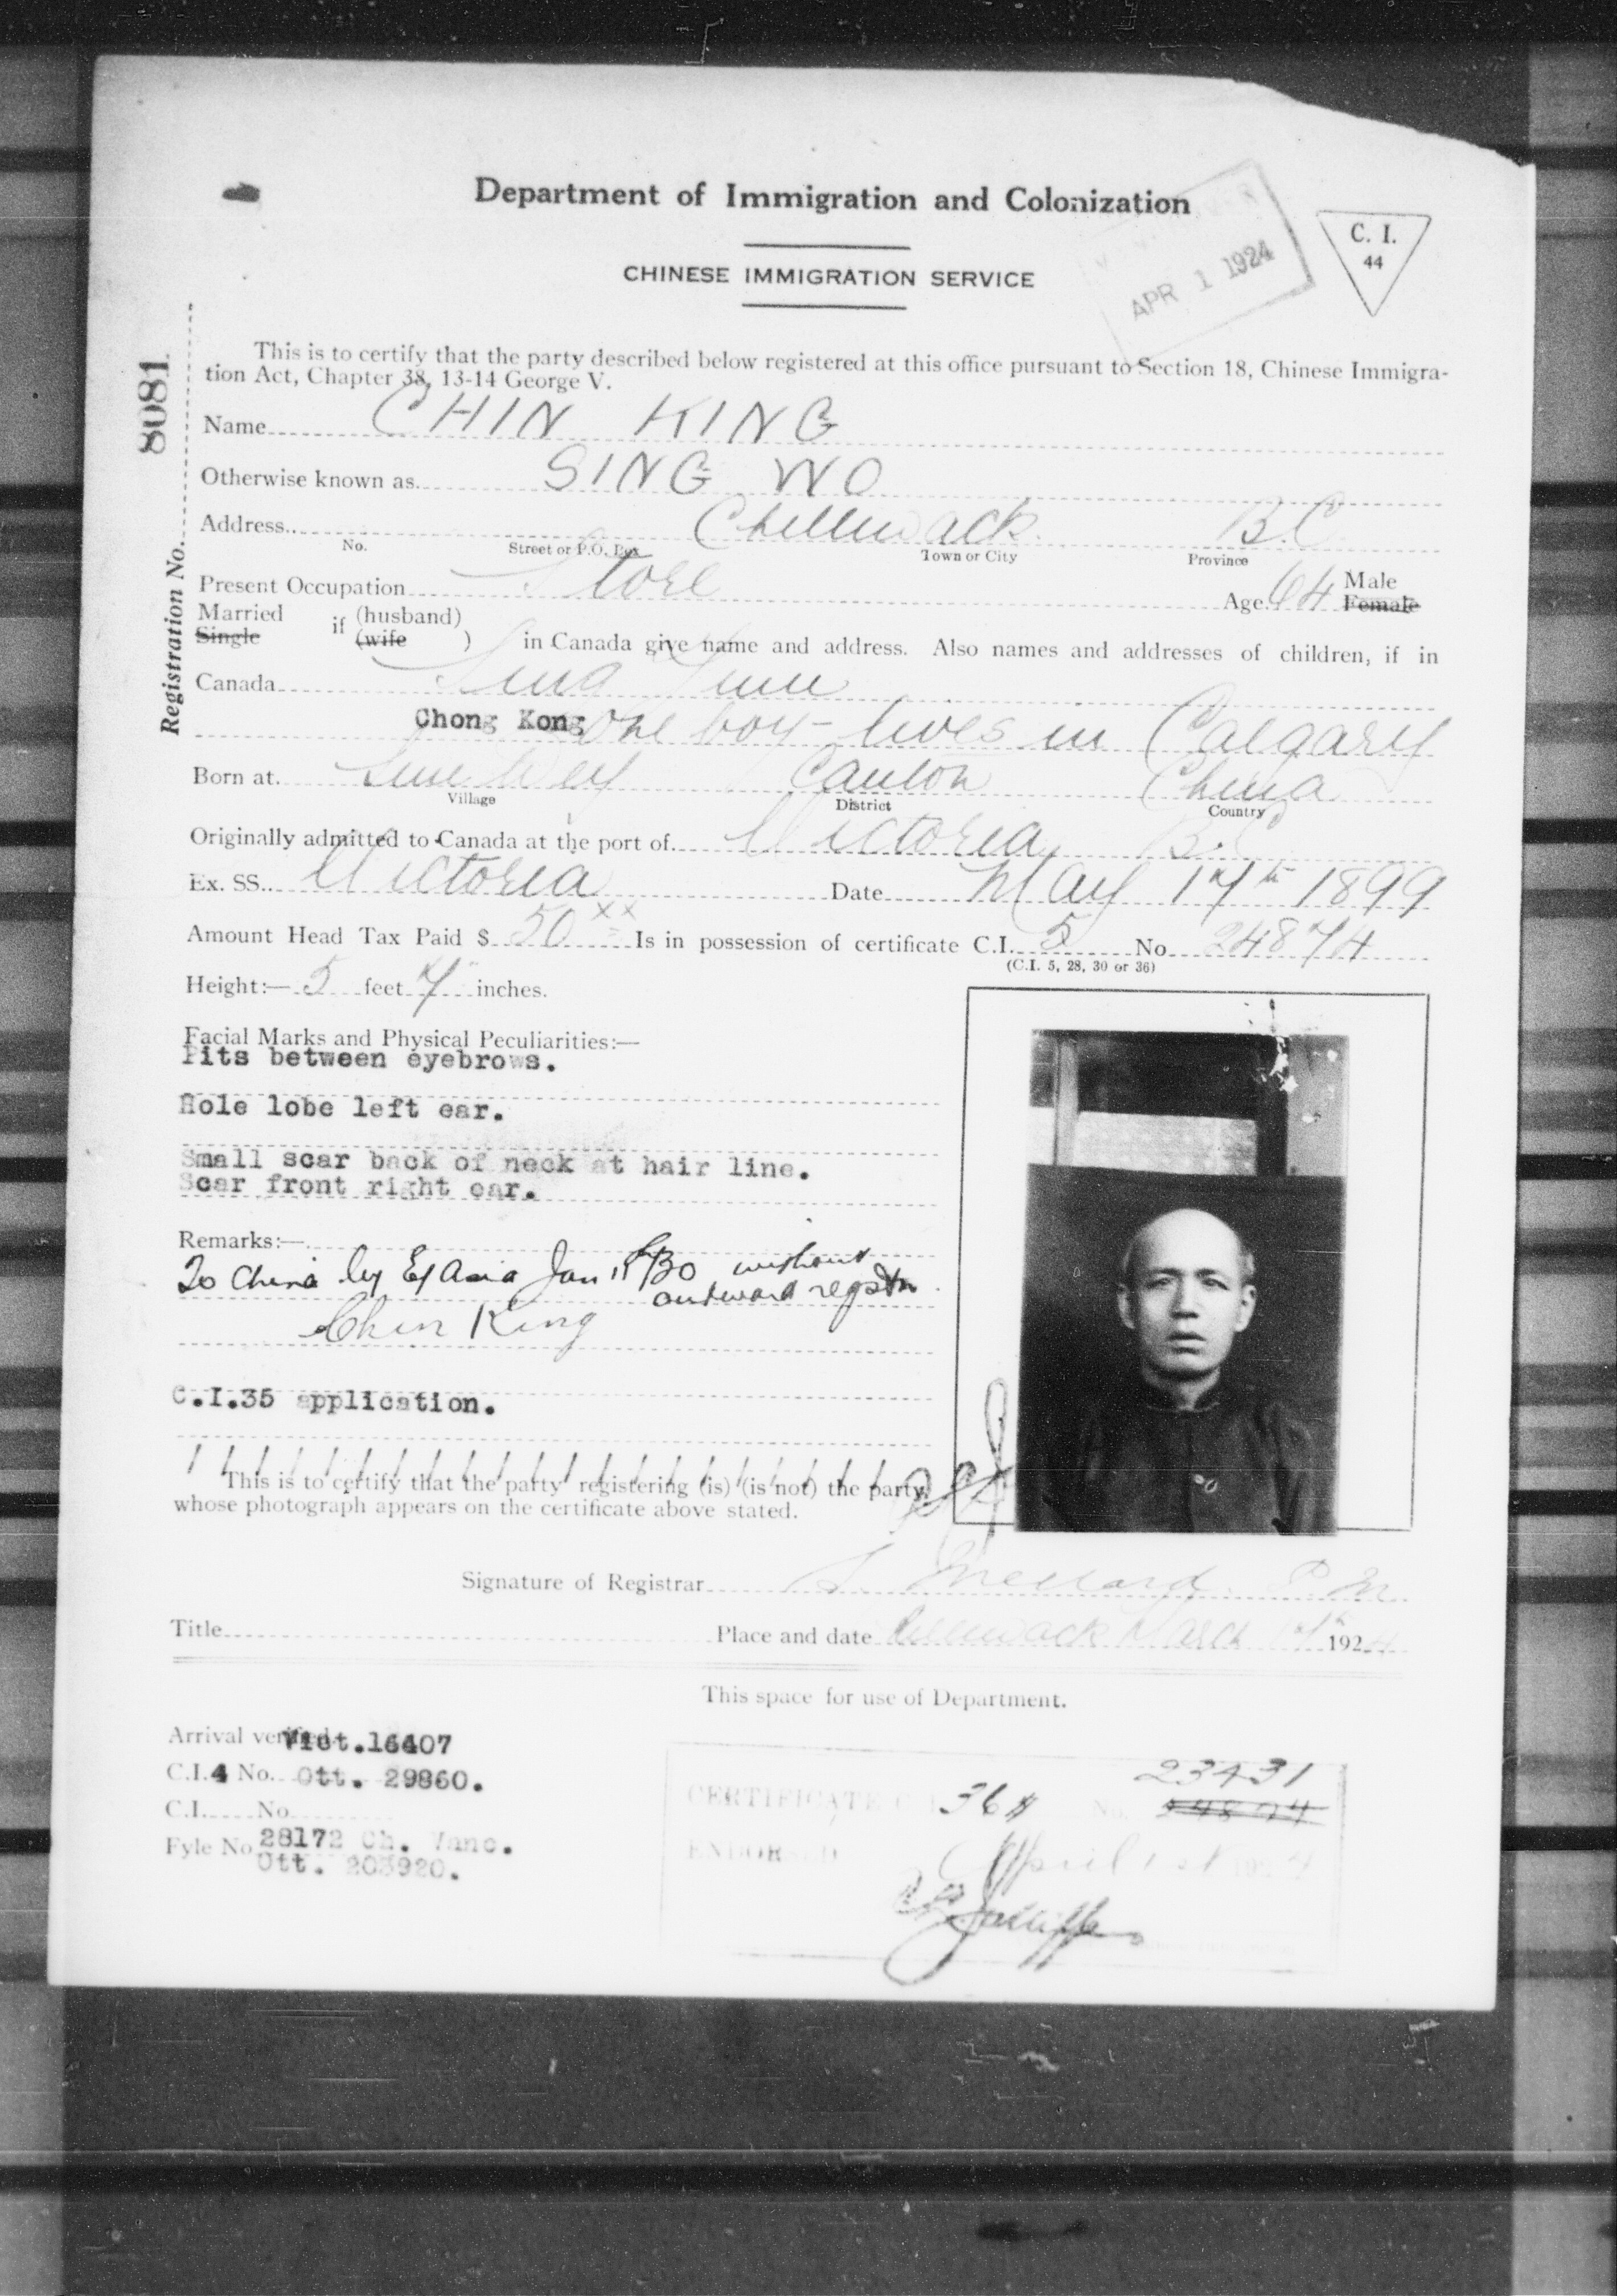 Department of Immigration and Colonization
CHINESE IMMIGRATION SERVICE
APR 1 1924
C. I.
44
Registration No. 8081
This is to certify that the party described below registered at this office pursuant to Section 18, Chinese Immigra-
tion Act, Chapter 38, 13-14 George V.
Name CHIN KING
Otherwise known as SING WO
Address Chilliwack B.C
No. Street or P.O. Box Town or City Province
Present Occupation Store Age 64 Male Female
Married (husband)
Single if (wife ) in Canada give name and address. Also names and addresses of children, if in
Canada
Chong Kong One boy - lives in Calgary
Born at Canton China
Village District Country
Originally admitted to Canada at the port of Victoria B.C
Ex. SS. Victoria Date May 17th 1899
Amount Head Tax Paid $ 50 xx Is in possession of certificate C.I. 5 No. 24874
(C.I. 5, 28, 30 or 36)
Height:— 5 feet 7 inches.
Facial Marks and Physical Peculiarities:—
Pits between eyebrows.
Hole lobe left ear.
Small scar back of neck at hair line.
Scar front right ear.
Remarks:—
To China by E/Asia Jan 30 without
outward regstn
Chin King
C.I.35 application.
This is to certify that the party registering (is) (is not) the party
whose photograph appears on the certificate above stated.
Signature of Registrar
Title Place and date Chilliwack March 1924
This space for use of Department.
Arrival verified Vict.16407
C.I.4 No. Ott. 29860.
C.I. No.
Fyle No. 28172 Ch. Vanc.
Ott. 203920.
CERTIFICATE C.I. 36 No. 24874 23431
ENDORSED April 1st 1924